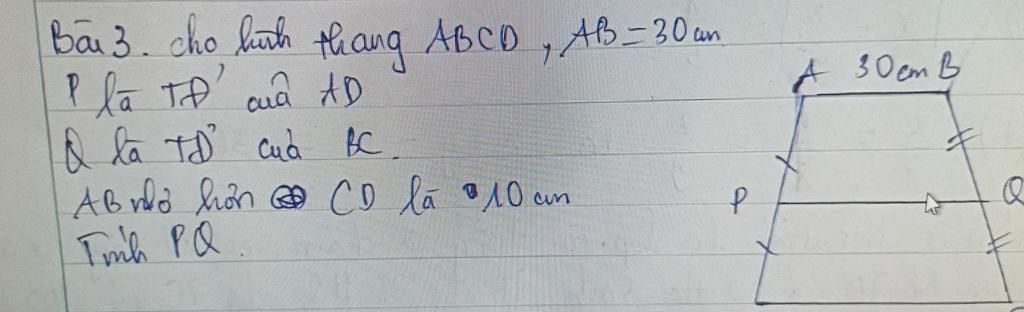 Bài 3. cho hình thang ABCD, AB = 30 cm
P là TĐ' của AD
Q là TĐ' của BC.
AB nhỏ hơn CD là 10 cm
Tính PQ.
A 30cm B
P Q